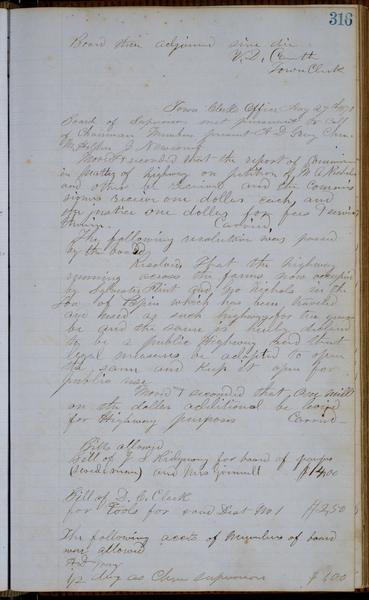 316
Board then adjourned sine die
Town Clerk
Town Clerks Office May 27th
Board of Supervisors met pursuant to call
of Chairman Members present A D Gray Chm
J. Newsom
Moved & seconded that the report of
in matter of highway on petition of W A Nichols
and others be received and the
receive one dollar each and
justice one dollar for fees & services
Carried
The following resolution was passed
by the board
Resolved that the highway
running across the farms now occupied
by Sylvester Flint and Geo Nichols in the
which has been traveled
and used as such highway for ten years
be and the same is hereby declared
to be a public Highway and that
legal measures be adopted to open
the same and keep it open for
public use
Moved & seconded that One mill
on the dollar additional be levied
for Highway purposes Carried
Bills allowed
Bill of J S Ridgway for board of pauper
and Mrs $14.00
Bill of D. C. Clark
for Tools for road Dist No 1 $2.50
The following accts of members of board
were allowed
A D Gray
1/2 day as Chm supervisor $1.00